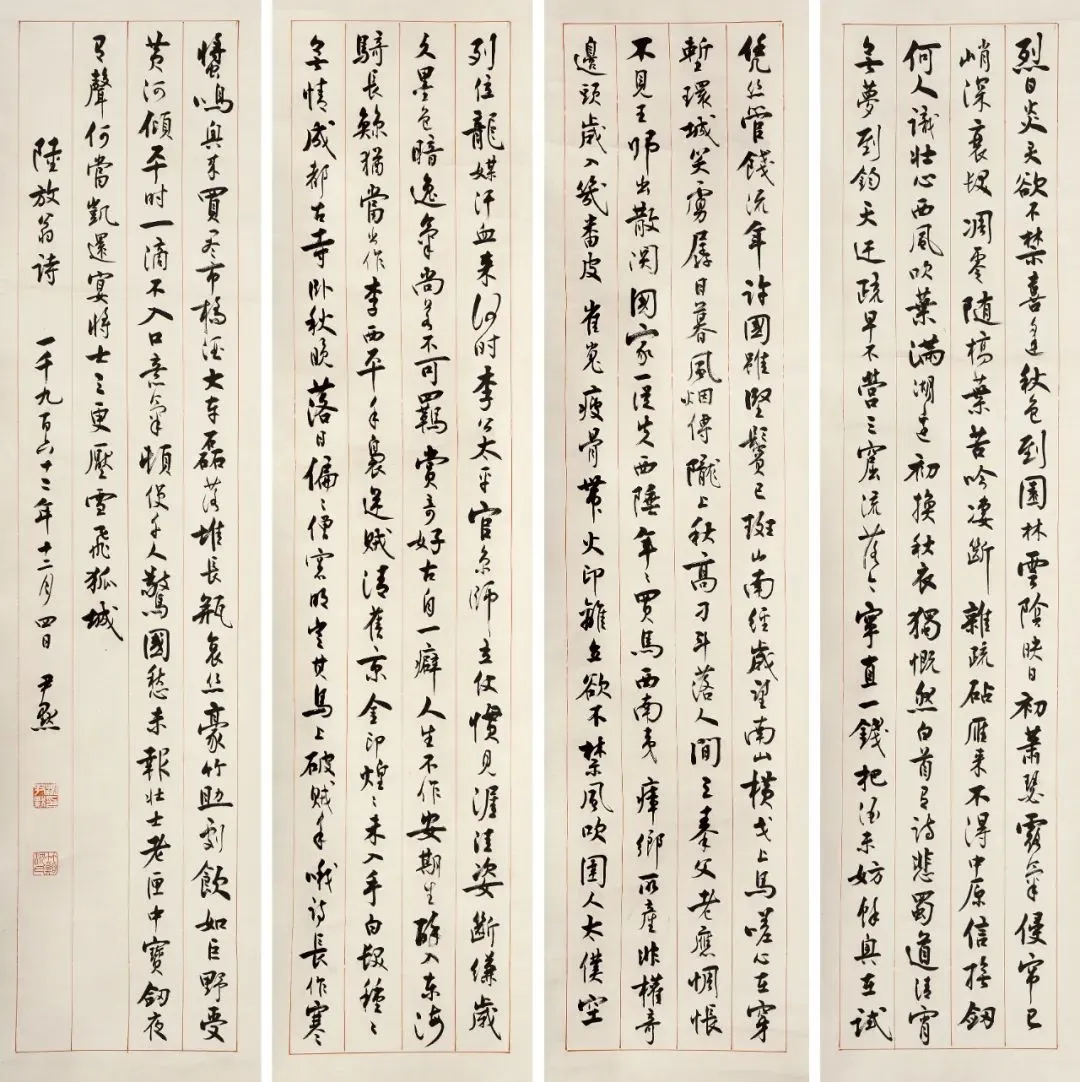 烈日炎天欲不禁喜逢秋色到園林雲陰映日初蕭瑟露氣侵帘已
峭深衰髮凋零随槁葉苦吟凄斷雜疏砧雁来不得中原信撫劒
何人識壮心西風吹葉滿湖邊初換秋衣獨慨然白首有詩悲蜀道清宵
無夢到鈞天迂疏早不營三窟流落今寧直一錢把酒未妨餘興在試
凭丝管餞流年許國雖堅鬢已斑山南經歲望南山横戈上馬嗟心在穿
塹環城笑虜孱日暮風烟傳隴上秋高刁斗落人間三秦父老應惆悵
不見王师出散関國家一從失西陲年〻買馬西南夷瘴鄉所產非權奇
邊頭歲入幾番皮崔嵬瘦骨帶火印離立欲不禁風吹圉人太僕空
列位龍媒汗血来何时李公太平官京師立仗慣見渥洼姿斷縑歲
久墨色暗逸氣尚若不可羈賞奇好古自一癖人生不作安期生醉入東海
騎長鯨猶當出作李西平手梟逆賊清舊京金印煌〻未入手白髮種〻
無情成都古寺卧秋晚落日偏〻僧窓明豈其馬上破賊手哦詩長作寒
螿鳴興来買盡市橋酒大车磊落堆長瓶哀丝豪竹助劇飲如巨野受
黄河傾平时一滴不入口意氣頓使千人驚國愁未報壮士老匣中寶劒夜
有聲何當凱還宴將士三更壓雪飛狐城
陸放翁诗 一千九百六十二年十二月四日 尹默